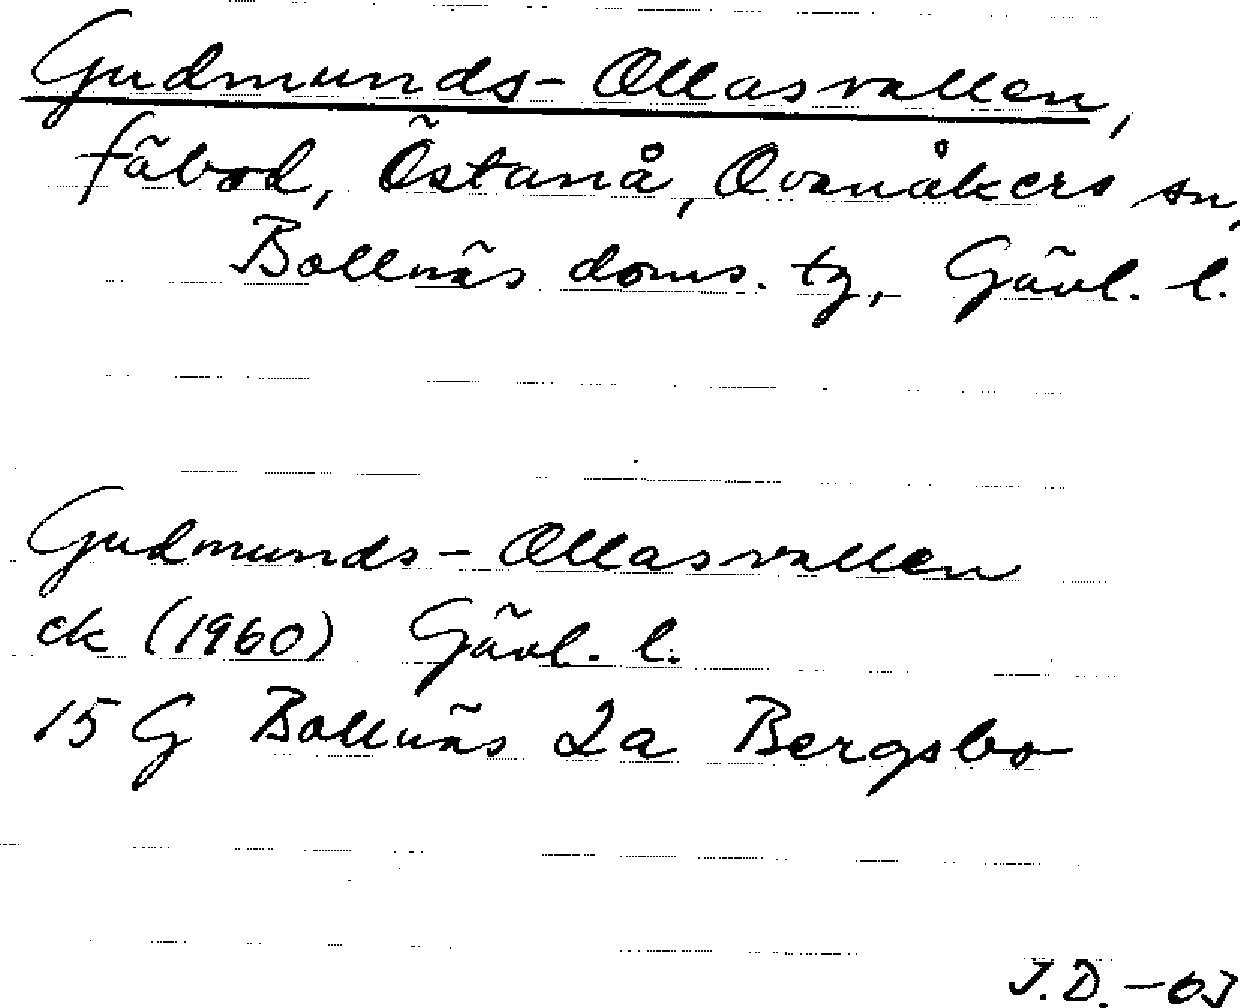 Gudmunds-Ollasvallen,
fäbod, Östanå, Ovanåkers sn,
Bollnäs doms. tg, Gävl. l.
Gudmunds-Ollasvallen
ek (1960) Gävl. l.
15 G Bollnäs 2a Bergsbo
J.D.